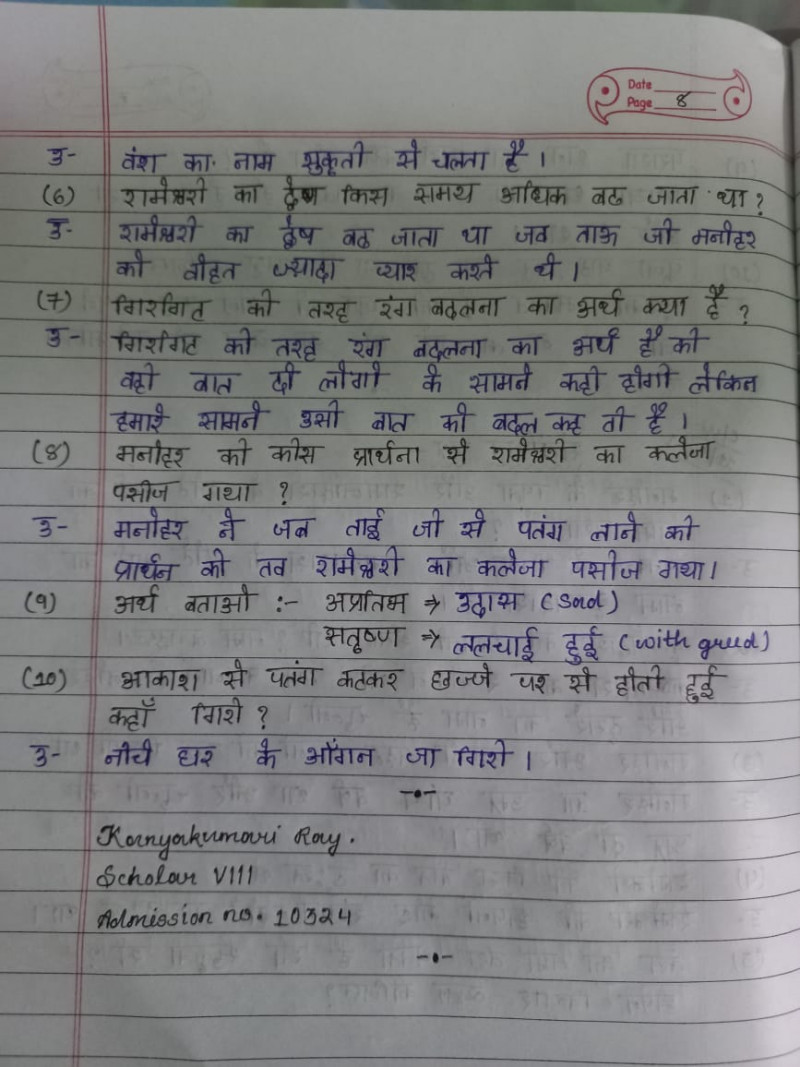 Date
Page 8
उ- वंश का नाम सुकृती से चलता है ।
(6) रामेश्वरी का द्वेष किस समय अधिक बढ जाता था ?
उ- रामेश्वरी का द्वेष बढ जाता था जब ताऊ जी मनोहर
को बोहत ज्यादा प्यार करते थे ।
(7) गिरगिट की तरह रंग बदलना का अर्थ क्या है ?
उ- गिरगिट की तरह रंग बदलना का अर्थ है की
वही बात दी लोगो के सामने कही होगी लेकिन
हमारे सामने उसी बात को बदल कह ती है ।
(8) मनोहर की कीस प्रार्थना से रामेश्वरी का कलेजा
पसीज गया ?
उ- मनोहर ने जब ताई जी से पतंग लाने की
प्रार्थन की तब रामेश्वरी का कलेजा पसीज गया।
(9) अर्थ बताओ :- अप्रतिभ ⇒ उदास (Sad)
सतृष्ण ⇒ ललचाई हुई (with greed)
(10) आकाश से पतंग कटकर छज्जे पर से होती हुई
कहाँ गिरी ?
उ- नीचे घर के आँगन जा गिरी ।
Kanyakumari Ray.
Scholar VIII
Admission no. 10324